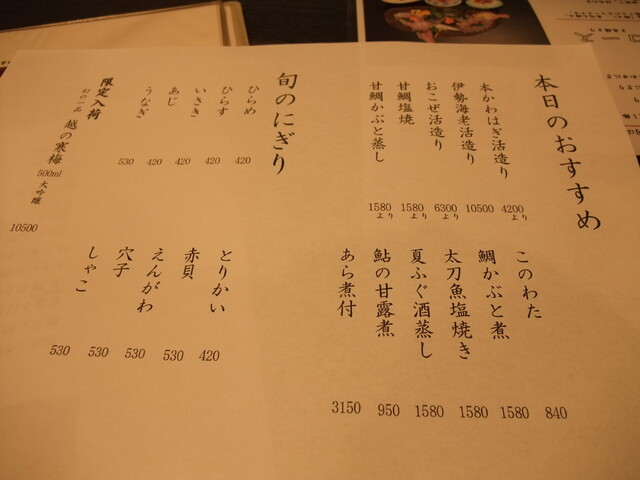 本日のおすすめ
本かわはぎ活造り 4200より
伊勢海老活造り 10500
おこぜ活造り 6300より
甘鯛塩焼 1580より
甘鯛かぶと蒸し 1580より
このわた 840
鯛かぶと煮 1580
太刀魚塩焼き 1580
夏ふぐ酒蒸し 1580
鮎の甘露煮 950
あら煮付 3150
旬のにぎり
ひらめ 420
ひらす 420
いさき 420
あじ 420
うなぎ 530
とりかい 420
赤貝 530
えんがわ 530
穴子 530
しゃこ 530
限定入荷
幻の一品 越の寒梅 500ml 大吟醸 10500